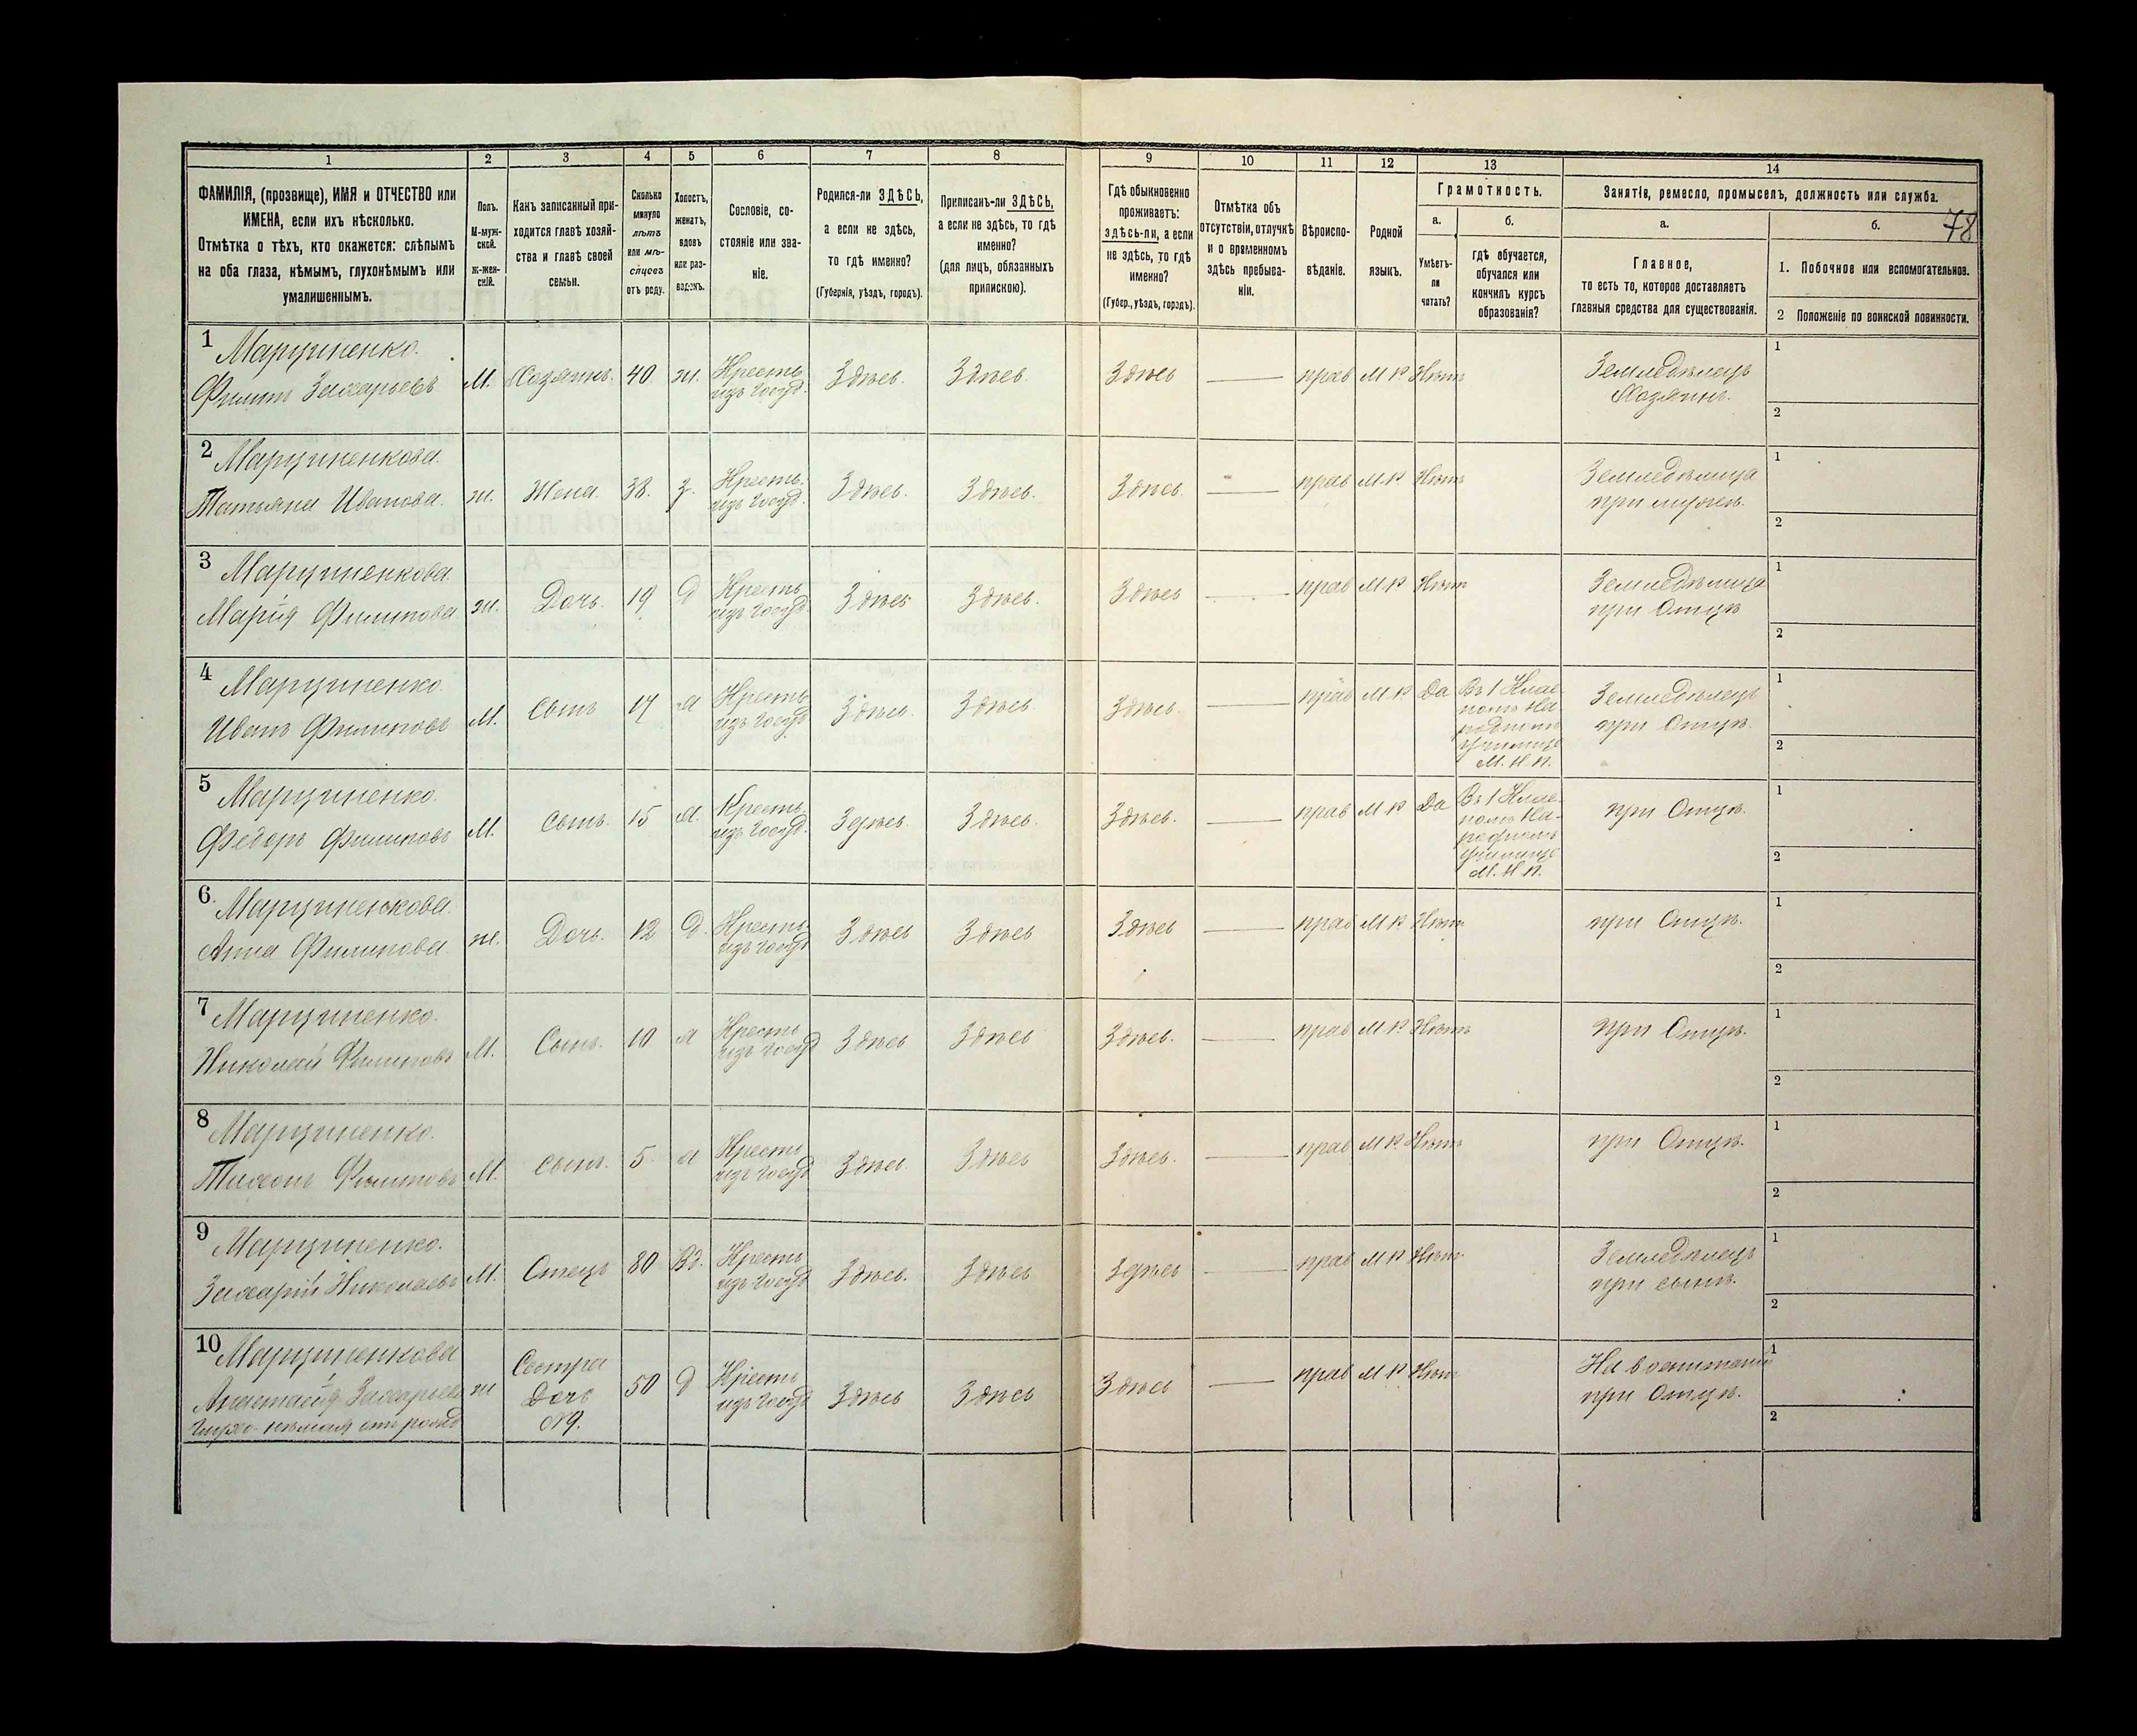 1 2 3 4 5 6 7 8 9 10 11 12 13 14
ФАМИЛІЯ, (прозвище), ИМЯ и ОТЧЕСТВО или
ИМЕНА, если ихъ нѣсколько.
Отмѣтка о тѣхъ, кто окажется: слѣпымъ
на оба глаза, нѣмымъ, глухонѣмымъ или
умалишеннымъ.
Полъ.
М-муж-
ской.
Ж-жен-
скій.
Какъ записанный при-
ходится главѣ хозяй-
ства и главѣ своей
семьи.
Сколько
минуло
лѣтъ
или мѣ-
сяцевъ
отъ роду.
Холостъ,
женатъ,
вдовъ
или раз-
веденъ.
Сословіе, со-
стояніе или зва-
ніе.
Родился-ли ЗДѢСЬ,
а если не здѣсь,
то гдѣ именно?
(Губернія, уѣздъ, городъ).
Приписанъ-ли ЗДѢСЬ,
а если не здѣсь, то гдѣ
именно?
(для лицъ, обязанныхъ
припискою).
Гдѣ обыкновенно
проживаетъ:
здѣсь-ли, а если
не здѣсь, то гдѣ
именно?
(Губер., уѣздъ, городъ).
Отмѣтка объ
отсутствіи, отлучкѣ
и о временномъ
здѣсь пребыва-
ніи.
Вѣроиспо-
вѣданіе.
Родной
языкъ.
Грамотность.
а.
Умѣетъ-
ли
читать?
б.
гдѣ обучается,
обучался или
кончилъ курсъ
образованія?
Занятіе, ремесло, промыселъ, должность или служба.
а.
Главное,
то есть то, которое доставляетъ
главныя средства для существованія.
б.
78
1. Побочное или вспомогательное.
2 Положеніе по воинской повинности.
1
Марциненко.
Филипъ Захарьевъ
М.
Хозяинъ.
40
ж.
Кресть
изъ Госуд.
Здѣсь.
Здѣсь.
Здѣсь
прав
М Р
Нѣтъ
Земледѣлецъ
Хозяинъ.
1
2
2
Марциненкова.
Татьяна Иванова.
ж.
Жена.
38.
з.
Кресть.
изъ Госуд.
Здѣсь.
Здѣсь.
Здѣсь.
прав
М Р
Нѣтъ
Земледѣлица
при мужѣ.
1
2
3
Марциненкова.
Марія Филипова
ж.
Дочь.
19
д
Кресть
изъ Госуд.
Здѣсь
Здѣсь.
Здѣсь
прав
М Р
Нѣтъ
Земледѣлица
при Отцѣ
1
2
4
Марциненко.
Иванъ Филиповъ
М.
Сынъ
17
Кресть
изъ Госуд.
Здѣсь.
Здѣсь.
Здѣсь.
прав
М Р
Да
Въ 1 Клас-
номъ На-
родномъ
училище
М. Н. П.
Земледѣлецъ
при Отцѣ.
1
2
5
Марциненко.
Федоръ Филиповъ
М.
Сынъ.
15
Кресть.
изъ Госуд.
Здѣсь.
Здѣсь.
Здѣсь.
прав
М Р
Да
Въ 1 Клас-
номъ На-
родномъ
училище
М. Н. П.
при Отцѣ.
1
2
6.
Марциненкова.
Анна Филипова.
ж.
Дочь.
12
д.
Кресть
изъ Госуд
Здѣсь
Здѣсь
Здѣсь
прав
М Р
Нѣтъ
при Отцѣ.
1
2
7
Марциненко.
Николай Филиповъ
М.
Сынъ.
10
Кресть
изъ Госуд
Здѣсь
Здѣсь
Здѣсь.
прав
М Р
Нѣтъ
при Отцѣ.
1
2
8
Марциненко.
Тихонъ Филиповъ
М.
Сынъ.
5
Кресть
изъ Госуд
Здѣсь.
Здѣсь
Здѣсь.
прав
М Р
Нѣтъ
при Отцѣ.
1
2
9
Марциненко.
Захарій Николаевъ
М.
Отецъ
80
Вд.
Кресть
изъ Госуд
Здѣсь.
Здѣсь
Здѣсь
прав
М Р
Нѣтъ
Земледѣлецъ
при сынѣ.
1
2
10
Марциненкова
Анастасія Захарьева
Глухо-нѣмая отъ рожд
ж
Сестра
Дочь
50
д
Кресть
изъ Госуд
Здѣсь
Здѣсь
Здѣсь
прав
М Р
Нѣтъ
На воспитаніи
при Отцѣ.
1
2